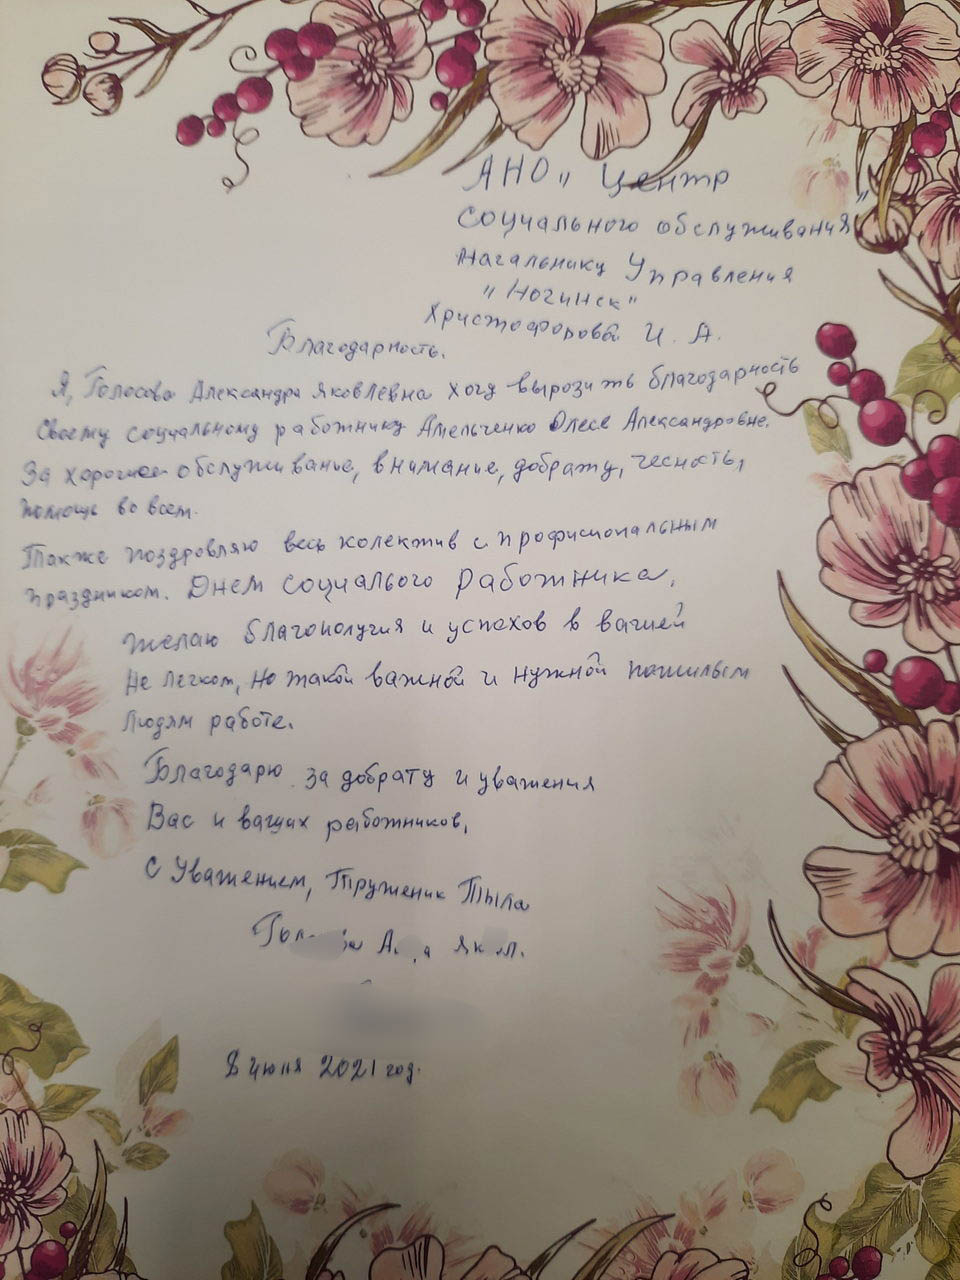 АНО „ Центр
социального обслуживания"
Начальнику Управления
„ Ногинск"
Христофоровой И. А.
Благодарность.
Я, Голосова Александра Яковлевна хочу вырозить благодарность
своему социальному работнику Амельченко Олесе Александровне.
За хорошее обслуживание, внимание, доброту, чесность,
помощь во всем.
Также поздровляю весь колектив с профисиональным
праздником. Днем социального работника.
Желаю благополучия и успехов в вашей
не легком, но такой важной и нужной пажилым
людям работе.
Благодарю за доброту и уважения
Вас и ваших работников,
С Уважением, Труженик Тыла
8 июня 2021 год.